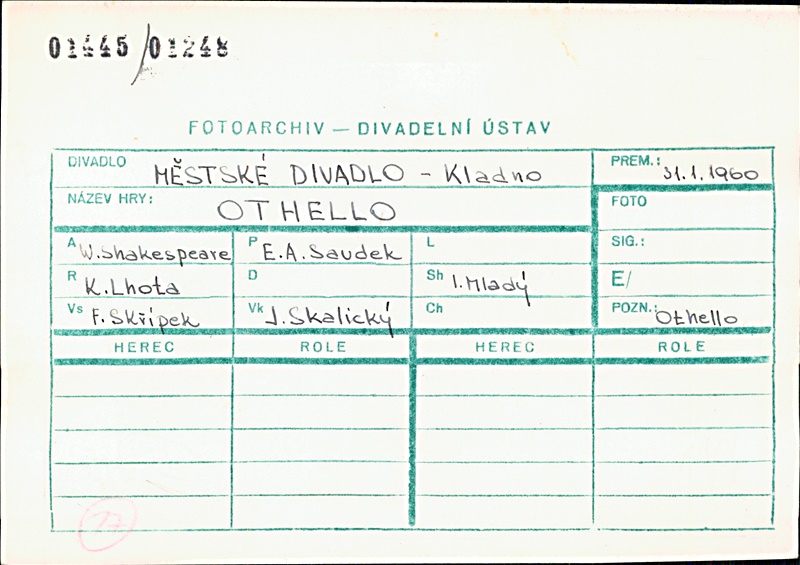 01445/01248
FOTOARCHIV — DIVADELNÍ ÚSTAV
DIVADLO MĚSTSKÉ DIVADLO - Kladno PREM.: 31.1.1960
NÁZEV HRY: OTHELLO FOTO
A W.Shakespeare P E.A.Saudek L SIG.:
R K.Lhota D Sh I.Mladý E/
Vs F.Skřípek Vk J.Skalický Ch POZN.: Othello
HEREC ROLE HEREC ROLE
17